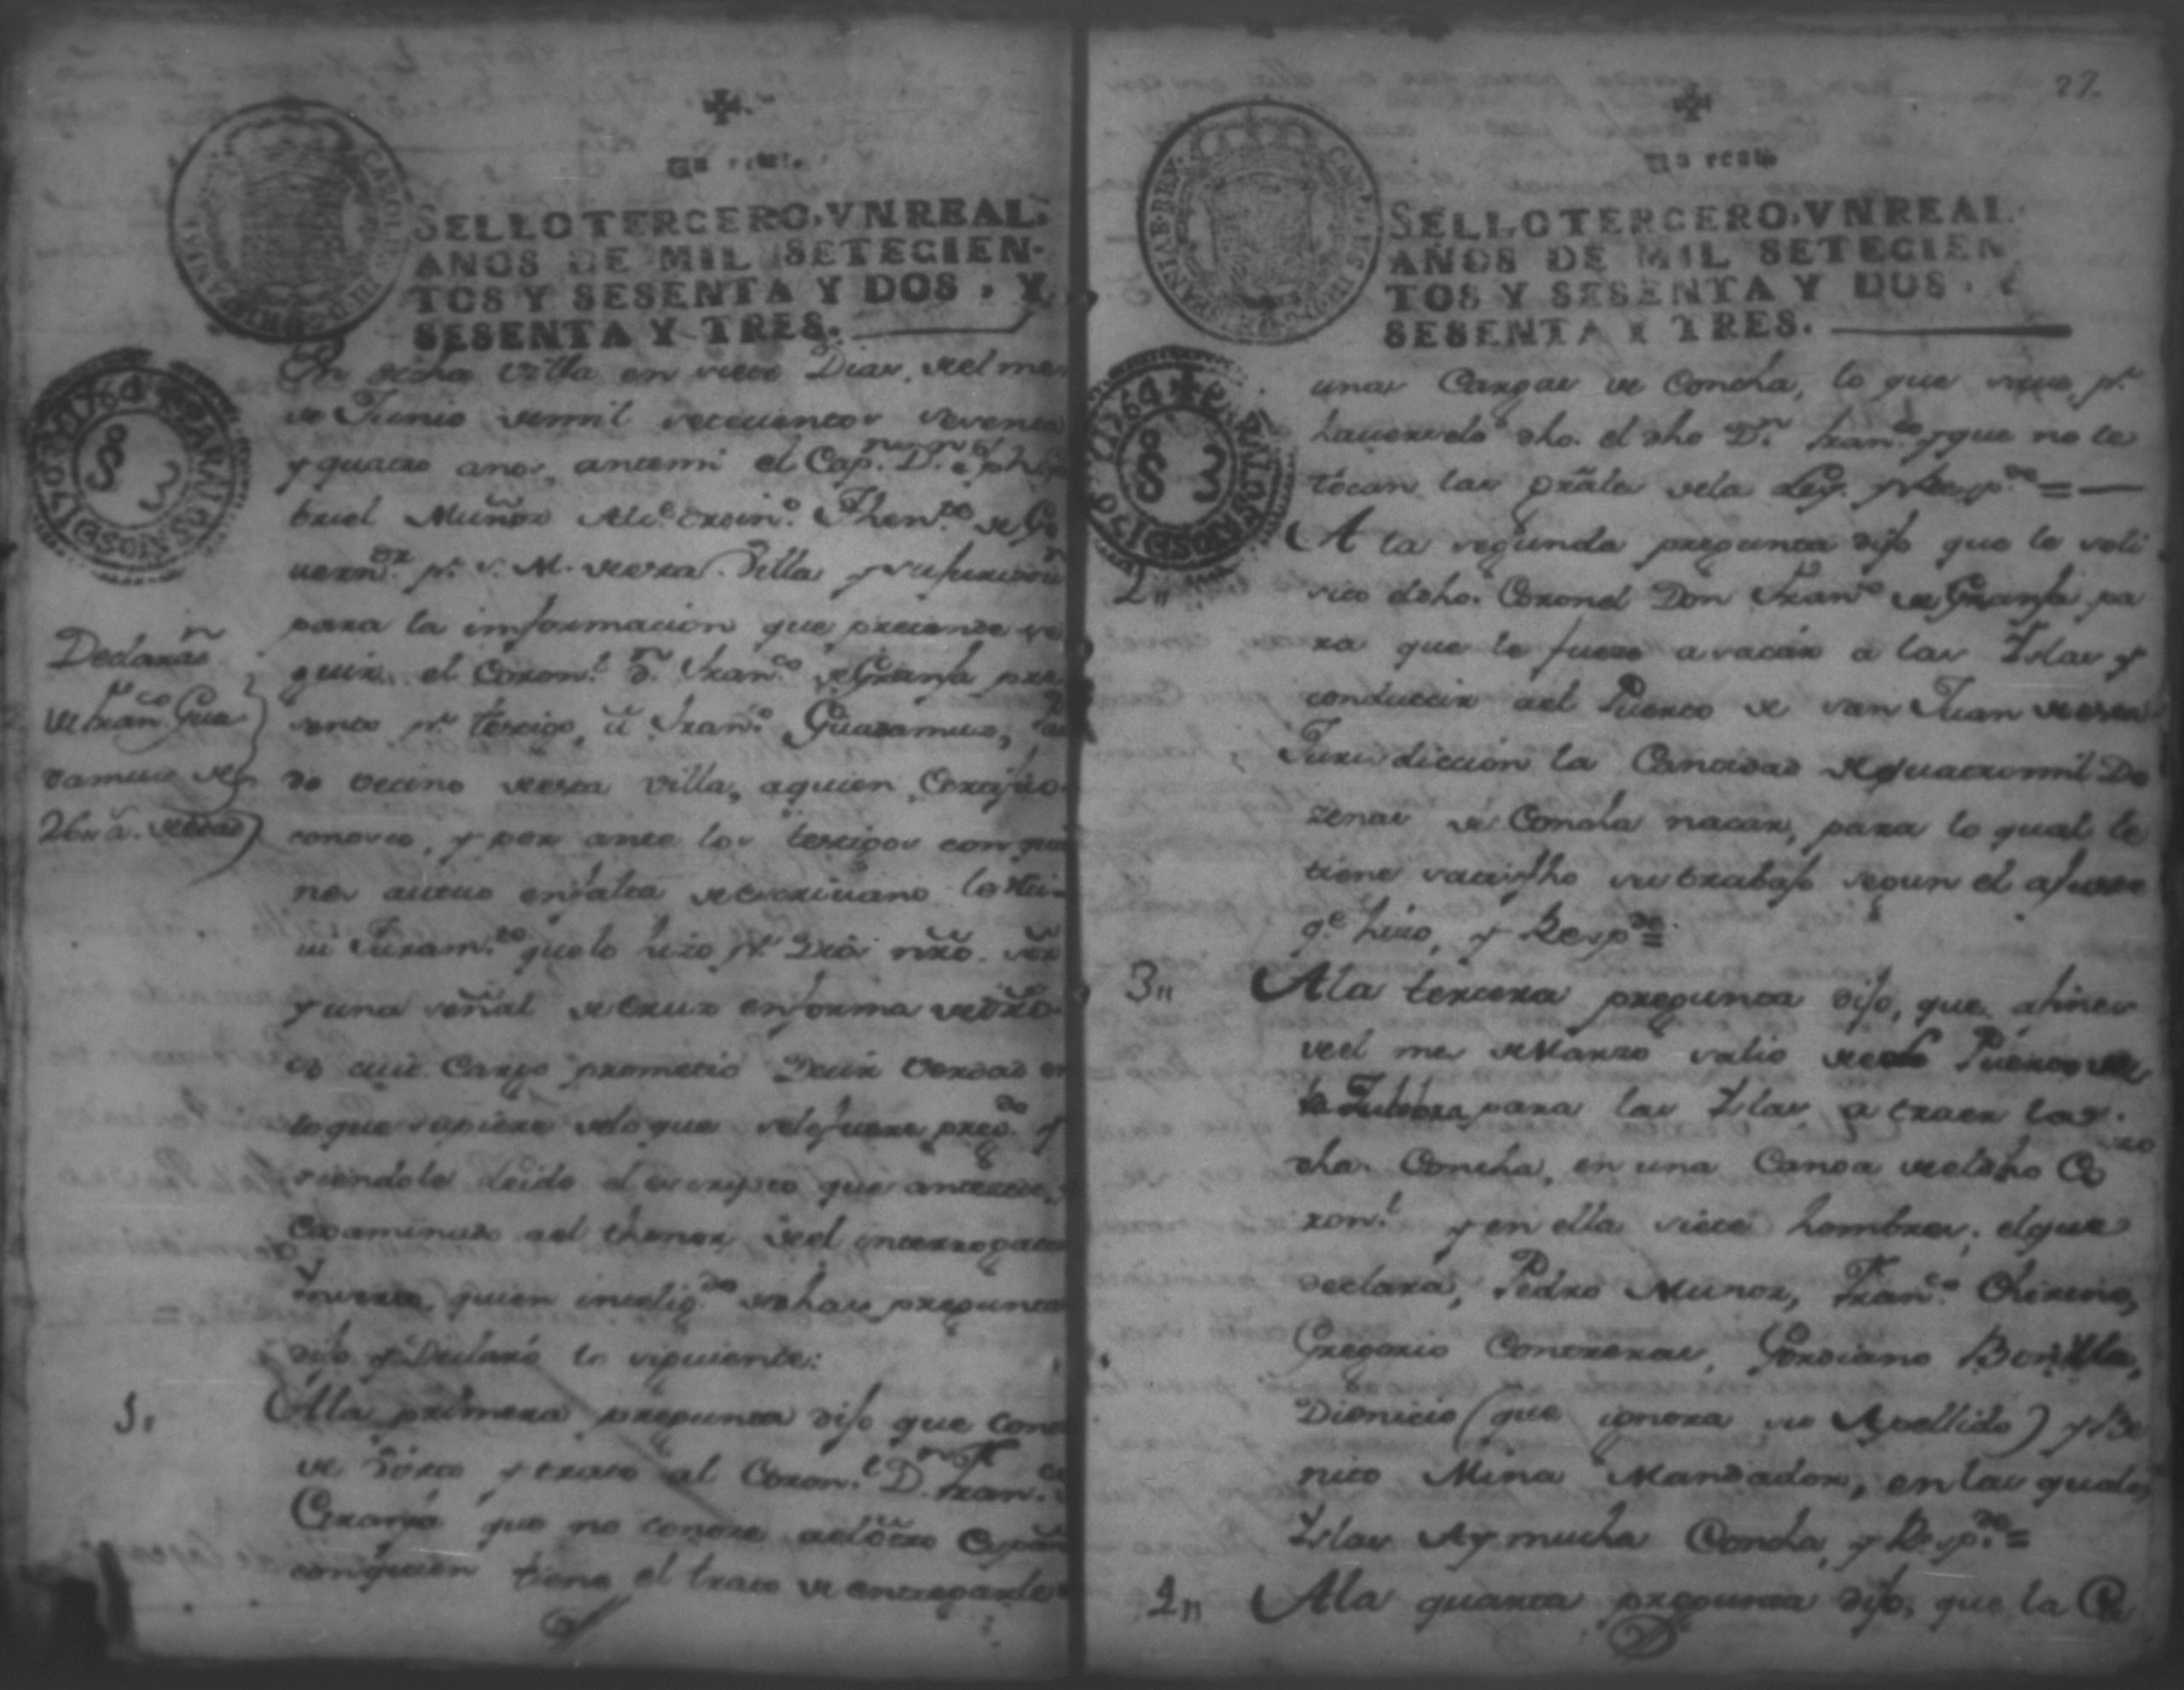 Un real.
SELLO TERCERO, VN REAL,
AÑOS DE MIL SETECIEN-
TOS Y SESENTA Y DOS, Y
SESENTA Y TRES.
CAROLUS III D G HISPANIAR
1764 Y 1765 CAROLUS III D
8 8 3
Declaraōn
de Franco Gua
damuz de
26 a. de edad
En dicha Villa en siete Dias del mes
de Junio de mil setecientos sesenta
y quatro años, antemi el Capn. Dn.
briel Muñoz Alce. ordino. Thente. de Go
vernor. pr. S. M. de esta Villa y su jurisdizn
para la informacion que pretende se
guir el Coronl. Dn. Franco. de Granja pre
sento pr. testigo, a Franco. Guadamuz,
do vecino de esta Villa, a quien Certifico
conosco, y por ante los testigos con quie
nes actuo en falta de escrivano le reci
vi Juramto. que lo hizo pr. Dios nrō. Sōr
y una señal de cruz en forma de drō.
so cuio Cargo prometio Decir Verdad en
lo que supiere de lo que se le fuere pregdo. y
siendole leido el escripto que antecede,
Examinado al thenor del interrogato
inserto, quien inteligdo. de sus preguntas
dijo y Declaró lo siguiente:
1. A la primera pregunta dijo que conoce
de vista y trato al Coronl. Dn. Franco.
Granja que no conoce al otro
con quien tiene el trato de entregarle
27
Un real
SELLO TERCERO, VN REAL
AÑOS DE MIL SETECIEN
TOS Y SESENTA Y DOS, Y
SESENTA Y TRES.
8 8 3
unas Cargas de Concha, lo que save, pr.
haverselo dho. el dho Dn. Franco. y que no le
tocan las grāles de la Ley. y Respde =
2,, A la segunda pregunta dijo que le soli
sito dicho. Coronel Don Franco de Granja pa
ra que le fuese a sacar a las Yslas y
conduccir ael Puerto de san Juan de esta
Jurisdiccion la Cantidad de quatro mil Do
zenas de Concha nacar, para lo qual le
tiene satisfho su trabajo segun el ajuste
qe. hizo, y Respde =
3,, A la tercera pregunta dijo, que a fines
del mes de Marzo salio de este Puerto de
para las Yslas a traer la
dha. Concha, en una Canoa del dho Co
ronl. y en ella siete hombres; el que
declara, Pedro Munoz, Franco. Chirino,
Gregorio Contreras, Gordiano Bonilla,
Dionicio (que ignora su Apellido) y Be
nito Mina Mandador, en las quales
Yslas Ay mucha Concha, y Respde =
4,, A la quarta pregunta dijo, que la Co